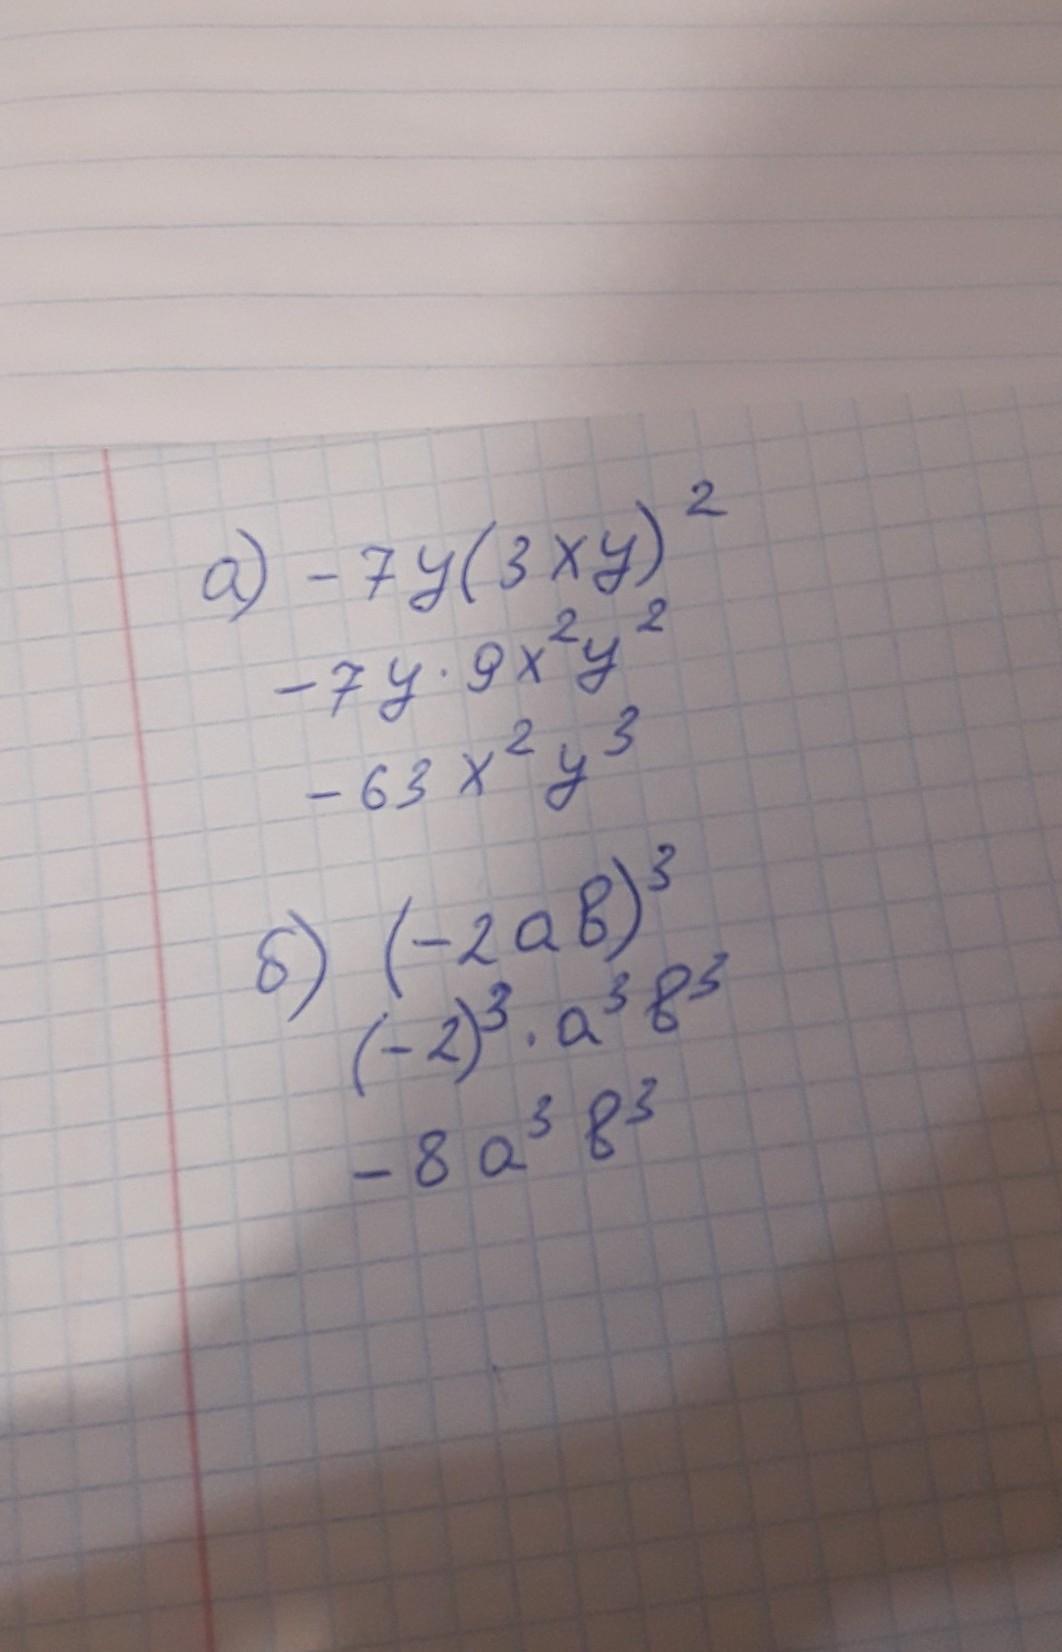 а) -7y(3xy)²
-7y·9x²y²
-63x²y³
б) (-2ab)³
(-2)³·a³b³
-8a³b³